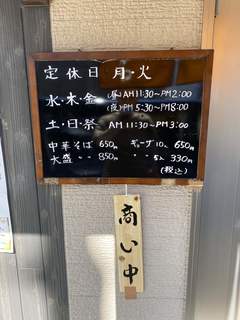 定休日 月・火
水・木・金 (昼) AM11:30〜PM2:00
(夜) PM5:30〜PM8:00
土・日・祭 AM11:30〜PM3:00
中華そば 650円 ギョーザ10ヶ 650円
大盛 850円 〃 5ヶ 330円
(税込)
商い中